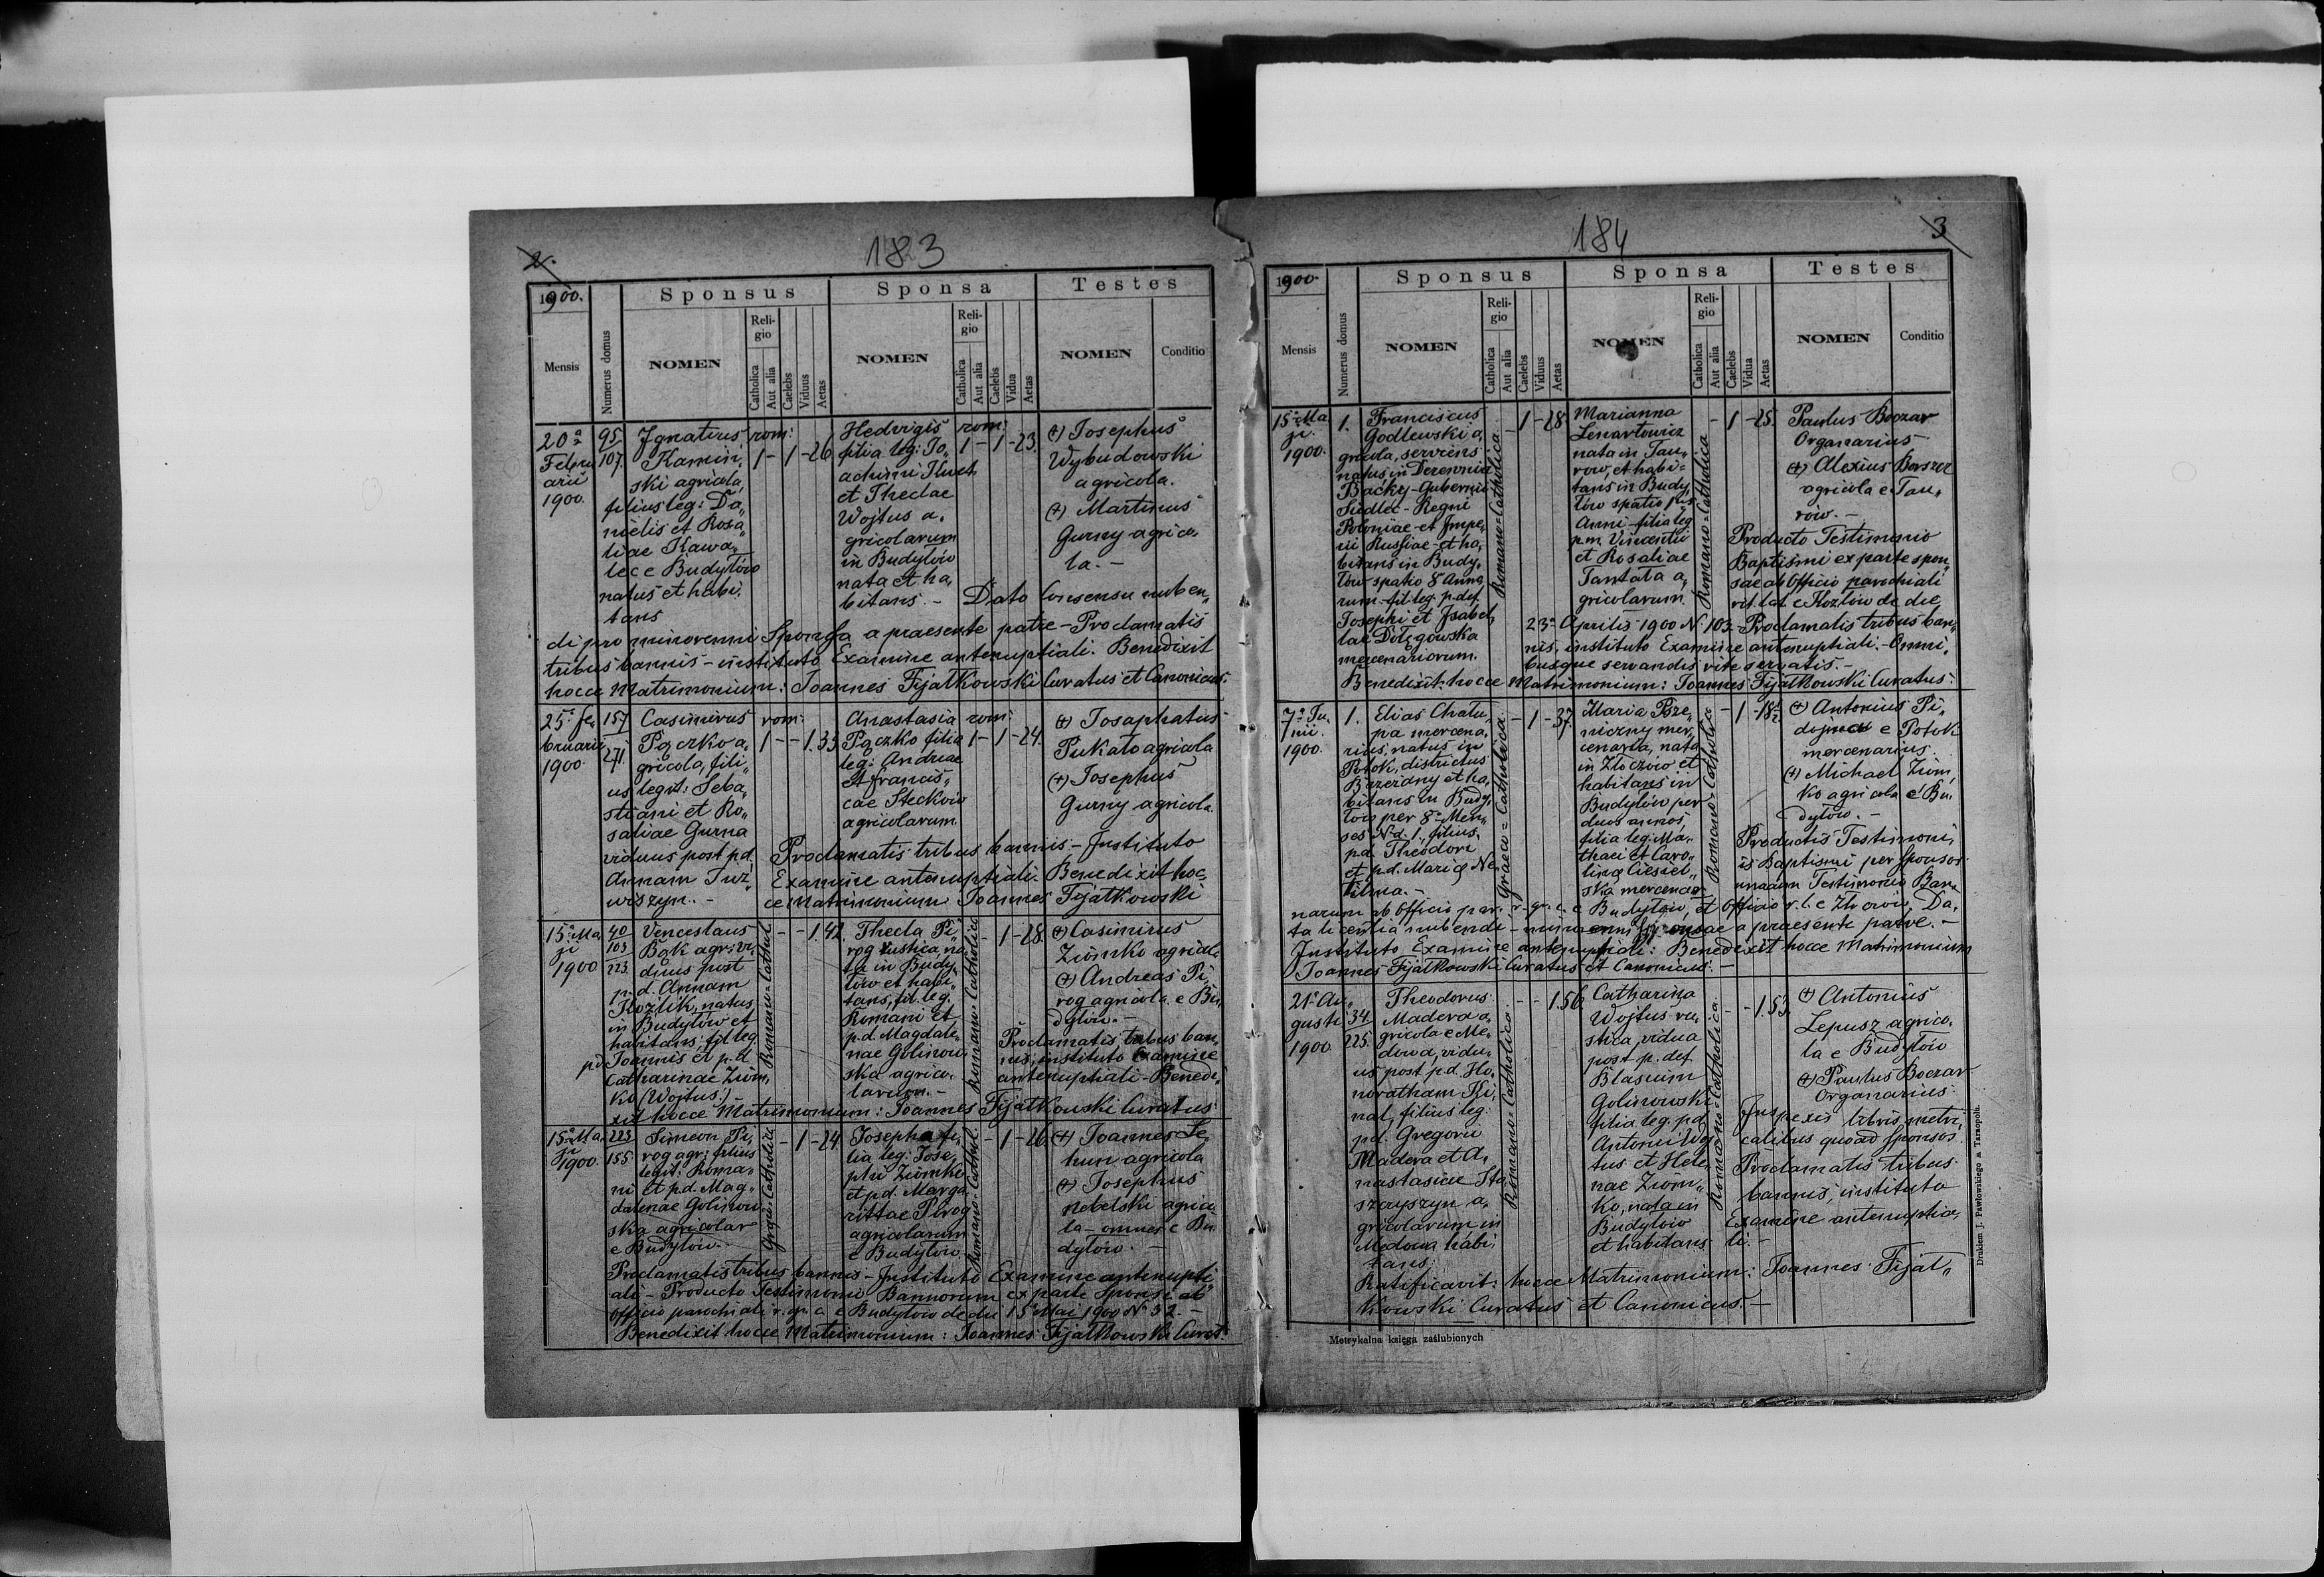 2.
183
1900.
Mensis
Numerus domus
Sponsus
NOMEN
Religio
Catholica
Aut alia
Caelebs
Viduus
Aetas
Sponsa
NOMEN
Religio
Catholica
Aut alia
Caelebs
Vidua
Aetas
Testes
NOMEN
Conditio
20ª
Febru
arii
1900.
95
107.
Ignatius rom:
Kamin,
1 - 1 - 26
ski agricola,
filius leg: Da„
nielis et Rosa„
liae Kawa„
lec e Budyłów
natus et habi„
tans
Hedvigis rom:
filia leg: Jo„ 1 - 1 - 23.
achimi
et Theclae
Wojtus a„
gricolarum
in Budyłów
nata et ha„
bitans. -
(+) Josephus
Wybudowski
agricola.
(+) Martinus
Gurny agrico„
la. -
Dato Consensu nuben„
di pro minorenni Sponsa a praesente patre - Proclamatis
tribus bannis - instituto Examine antenuptiali. Benedixit
hocce Matrimonium: Joannes Fijałkowski Curatus et Canonicus.
25ª Fe„
bruarii
1900.
157
271.
Casimirus rom:
Pączko a„ 1 - - 1. 35
gricola, fili„
us legit: Seba„
stiani et Ro„
saliae Gurna
viduus post p.d.
Annam
wiszyn. -
Anastasia rom:
Pączko filia 1 - 1 - 24.
leg: Andreae
et Francis„
cae Steckow
agricolarum.
(+) Josaphatus
Pukało agricola
(+) Josephus
Gurny agricola.
Proclamatis tribus bannis - Instituto
Examine antenuptiali. Benedixit hoc„
ce Matrimonium Joannes Fijałkowski
15ª Ma„
ji
1900
40
103
223.
Venceslaus
Bąk agr: vi„
duus post
p.d. Annam
Kozlik, natus
in Budyłów et
habitans, fil. leg.
p.d. Joannis et p.d.
Catharinae Ziom„
ko (Wojtus.) -
Romano-Cathol.
- - 1. 42.
Thecla Pi„
rog rustica na„
ta in Budy„
łów et habi„
tans, fil. leg.
Romani et
p.d. Magdale„
nae Golinow„
ska agrico„
larum. -
Romano-Catholica
- 1 - 28.
(+) Casimirus
Ziomko agricola
(+) Andreas Pi„
rog agricola e Bu„
dyłów. -
Proclamatis tribus ban„
nis; instituto Examine
antenuptiali - Benedi„
xit hocce Matrimonium: Joannes Fijałkowski Curatus
15ª Ma„
ji
1900.
223
155
Simeon Pi„
rog agr: filius
legit: Roma„
ni et p.d. Mag„
dalenae Golinow„
ska agricolar
e Budyłów. -
- 1 - 24.
Josepha fi„
lia leg: Jose„
phi Ziomko
et p.d. Marga„
rittae Pirog
agricolarum
e Budyłów.
Romano-Cathol.
- 1 - 26.
(+) Joannes Le„
hun agricola
(+) Josephus
Nebelski agrico„
la - omnes e Bu„
dyłów. -
Proclamatis tribus bannis - Instituto Examine antenupti„
ali - Producto Testimonio Bannorum ex parte Sponsi ab
Officio parochiali r. gr. c. e Budyłów de die 15ª Mai 1900 Nº 32. -
Benedixit hocce Matrimonium: Joannes Fijałkowski Curat.
184
3
1900.
Mensis
Numerus domus
Sponsus
NOMEN
Religio
Catholica
Aut alia
Caelebs
Viduus
Aetas
Sponsa
NOMEN
Religio
Catholica
Aut alia
Caelebs
Vidua
Aetas
Testes
NOMEN
Conditio
15ª Ma„
ji.
1900.
1.
Franciscus
Godlewski a„
gricola, serviens
natus in Derewnia
Backy - Gubernii
Siedlec - Regni
Poloniae - et Impe„
rii Russiae - et ha„
bitans in Budy„
łów spatio 8 Anno„
rum - fil. leg. p. def.
Josephi et Isabel„
lae Dołęgowska
mercenariorum.
Romano-Catholica
- 1 - 28
Marianna
Lenartowicz
nata in Tau„
rów, et habi=
tans in Budy„
łów spatio
Anni - filia leg
p.m. Vincentii
et Rosaliae
Tantała a„
gricolarum.
Romano-Catholica
- 1 - 25.
Paulus Boczar
Organarius
(+) Alexius Barszcz
agricola e Tau„
rów. -
Producto Testimonio
Baptismi ex parte spon„
sae ab Officio parochiali
rit. lat. e Kozłów de die
23ª Aprilis 1900 N. 103. Proclamatis tribus ban„
nis, instituto Examine antenuptiali. - Omni„
busque servandis rite servatis. -
Benedixit hocce Matrimonium: Joannes Fijałkowski Curatus.
7ª Ju„
nii.
1900.
1.
Elias Chału„
pa mercena„
rius, natus in
Potok, districtus
Brzezany et ha„
bitans in Budy„
łów per 8 Men„
ses N.d. 1, filius
p.d. Theodori
et p.d. Mariae Ne„
tilma. -
Graeco-Catholica
- 1 - 37.
Maria Psze„
niczny mer„
cenaria, nata
in Złoczów et
habitans in
Budyłów per
duos annos,
filia leg: Ma„
thaei et Caro„
linae Ciesiel„
ska mercenar
Romano-Catholica
- 1 - 18½
(+) Antonius Pi„
e Potok
mercenarius.
(+) Michael Ziom„
ko agricola e Bu„
dyłów. -
Productis Testimoni„
is Baptismi per Sponsos
Testimonio Ban„
norum ab Officio par. r. gr. c. e Budyłów, et Officio r. l. e Złoczów. Da„
ta licentia nubendi - minorenni Sponsae a praesente patre. -
Instituto Examine antenuptiali: Benedixit hocce Matrimonium
Joannes Fijałkowski Curatus et Canonicus. -
21ª Au„
gusti
1900.
34.
225.
Theodorus
Madera a„
gricola e Me„
dowa, vidu„
us post p.d. Ho„
noratham Ki„
nal, filius leg:
p.d. Gregorii
Madera et A„
nastasiae Sta„
szczyszyn a„
gricolarum in
Medowa habi„
tans.
Romano-Catholica
- - 1. 56.
Catharina
Wojtus ru„
stica, vidua
post p. def.
Blasium
Golinowski
filia leg. p.d.
Antonii Woj„
tus et Hele„
nae Ziom„
ko, nata in
Budyłów
et habitans
Romano-Catholica
- - 1. 53.
(+) Antonius
Lepusz agrico„
la e Budyłów
(+) Paulus Boczar
Organarius.
Inspexis libris metri„
calibus quoad Sponsos.
Proclamatis tribus
bannis, instituto
Examine antenuptia„
li. -
Ratificavit hocce Matrimonium: Joannes Fijał„
kowski Curatus et Canonicus. -
Metrykalna księga zaślubionych
Drukiem J. Pawłowskiego w Tarnopolu.